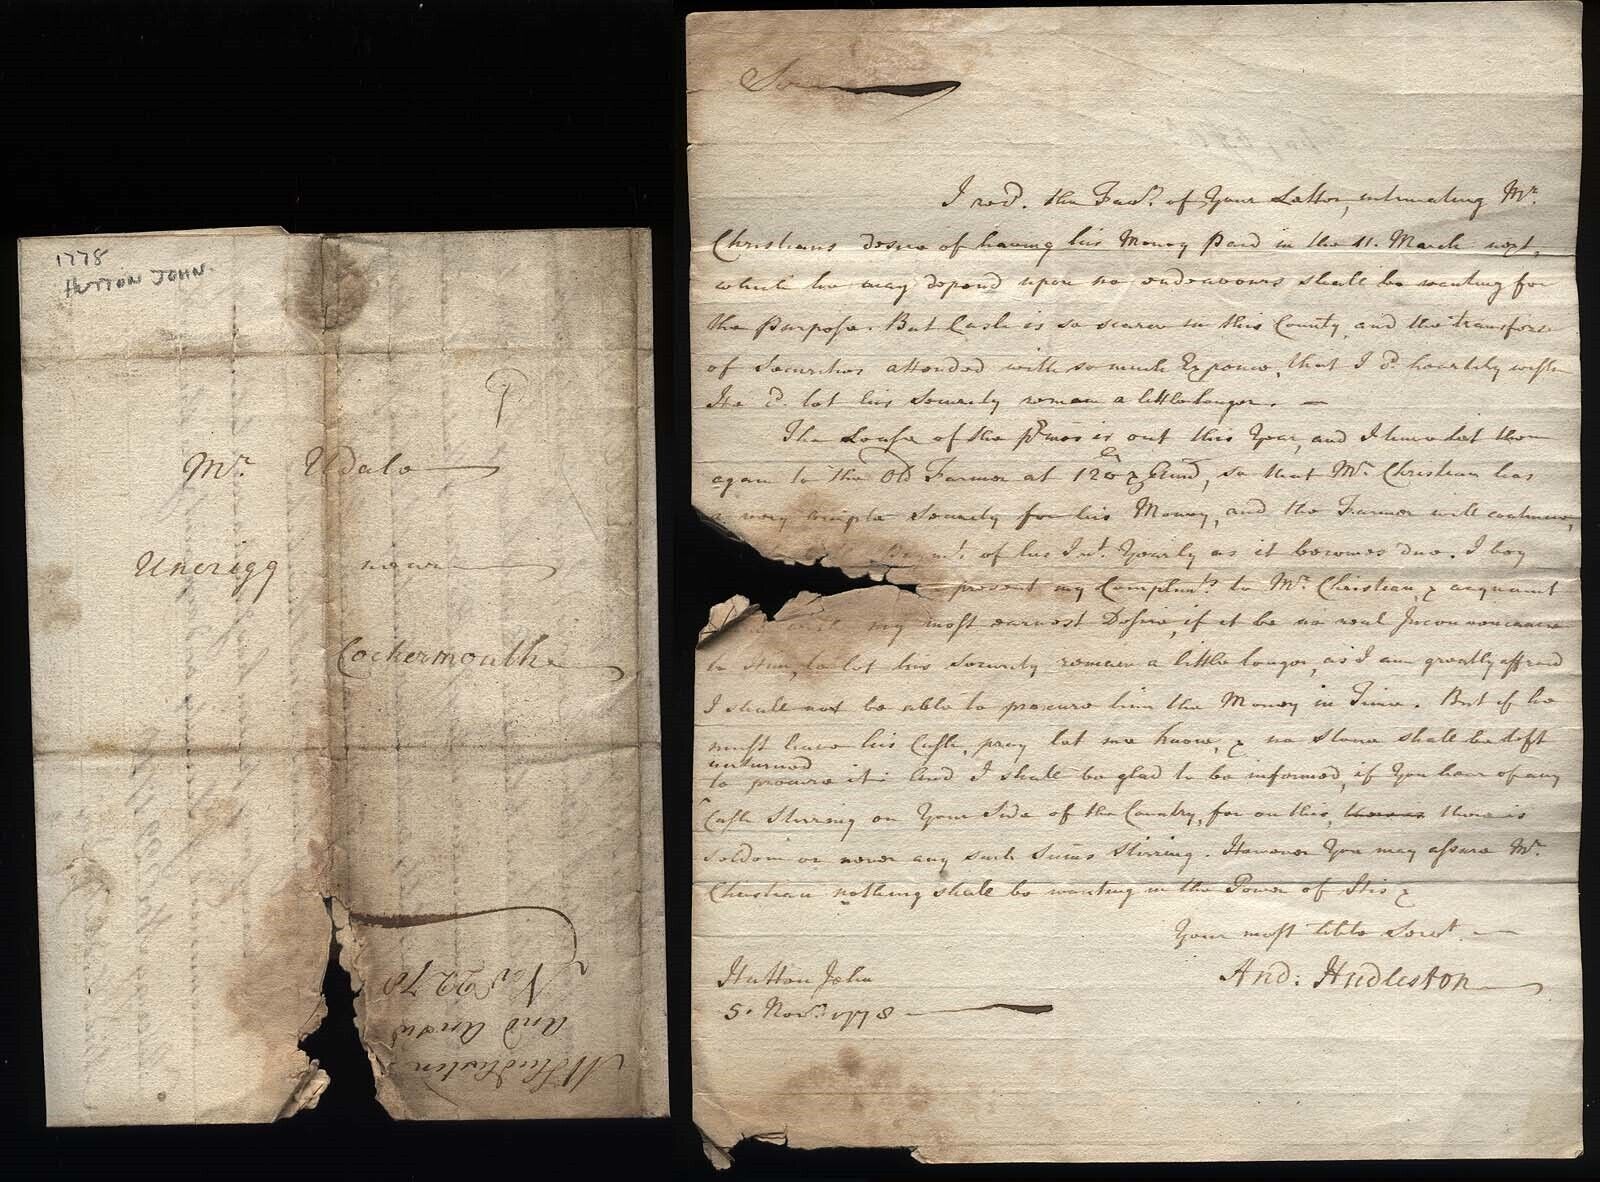 1778
HUTTON JOHN.
Mr. Udale
Unerigg near
Cockermouth
Mr Hudleston
and Answr
Novr 22 78
Sir
I recd. the Favr. of Your Letter, intimating Mr.
Christians desire of having his Money paid in the 11. March next,
which he may depend upon no endeavours shall be wanting for
the Purpose. But Cash is so scarce in this County, and the transfers
of Securities attended with so much Expence, that I cd. heartily wish
He cd. let his Security remain a little longer. —
The Lease of the prmes is out this Year, and I have Let them
again to the Old Farmer at 120 , so that Mr. Christian has
a very ample Security for his Money, and the Farmer will continue,
Paymt. of his Int. Yearly as it becomes due. I beg
present my Complimts. to Mr. Christian, & acquaint
my most earnest Desire, if it be no real Inconvenience
to Him, to let his Security remain a little longer, as I am greatly affraid
I shall not be able to procure him the Money in Time. But if he
must have his Cash, pray let me know, & no stone shall be left
unturned
to procure it: And I shall be glad to be informed, if You hear of any
Cash Stirring on Your Side of the Country, for on this, there is
seldom or never any such Sums Stirring. However You may assure Mr.
Christian nothing shall be wanting in the Power of Sir &
Your most hble Servt. —
And: Hudleston
Hutton John
5. Novr. 1778